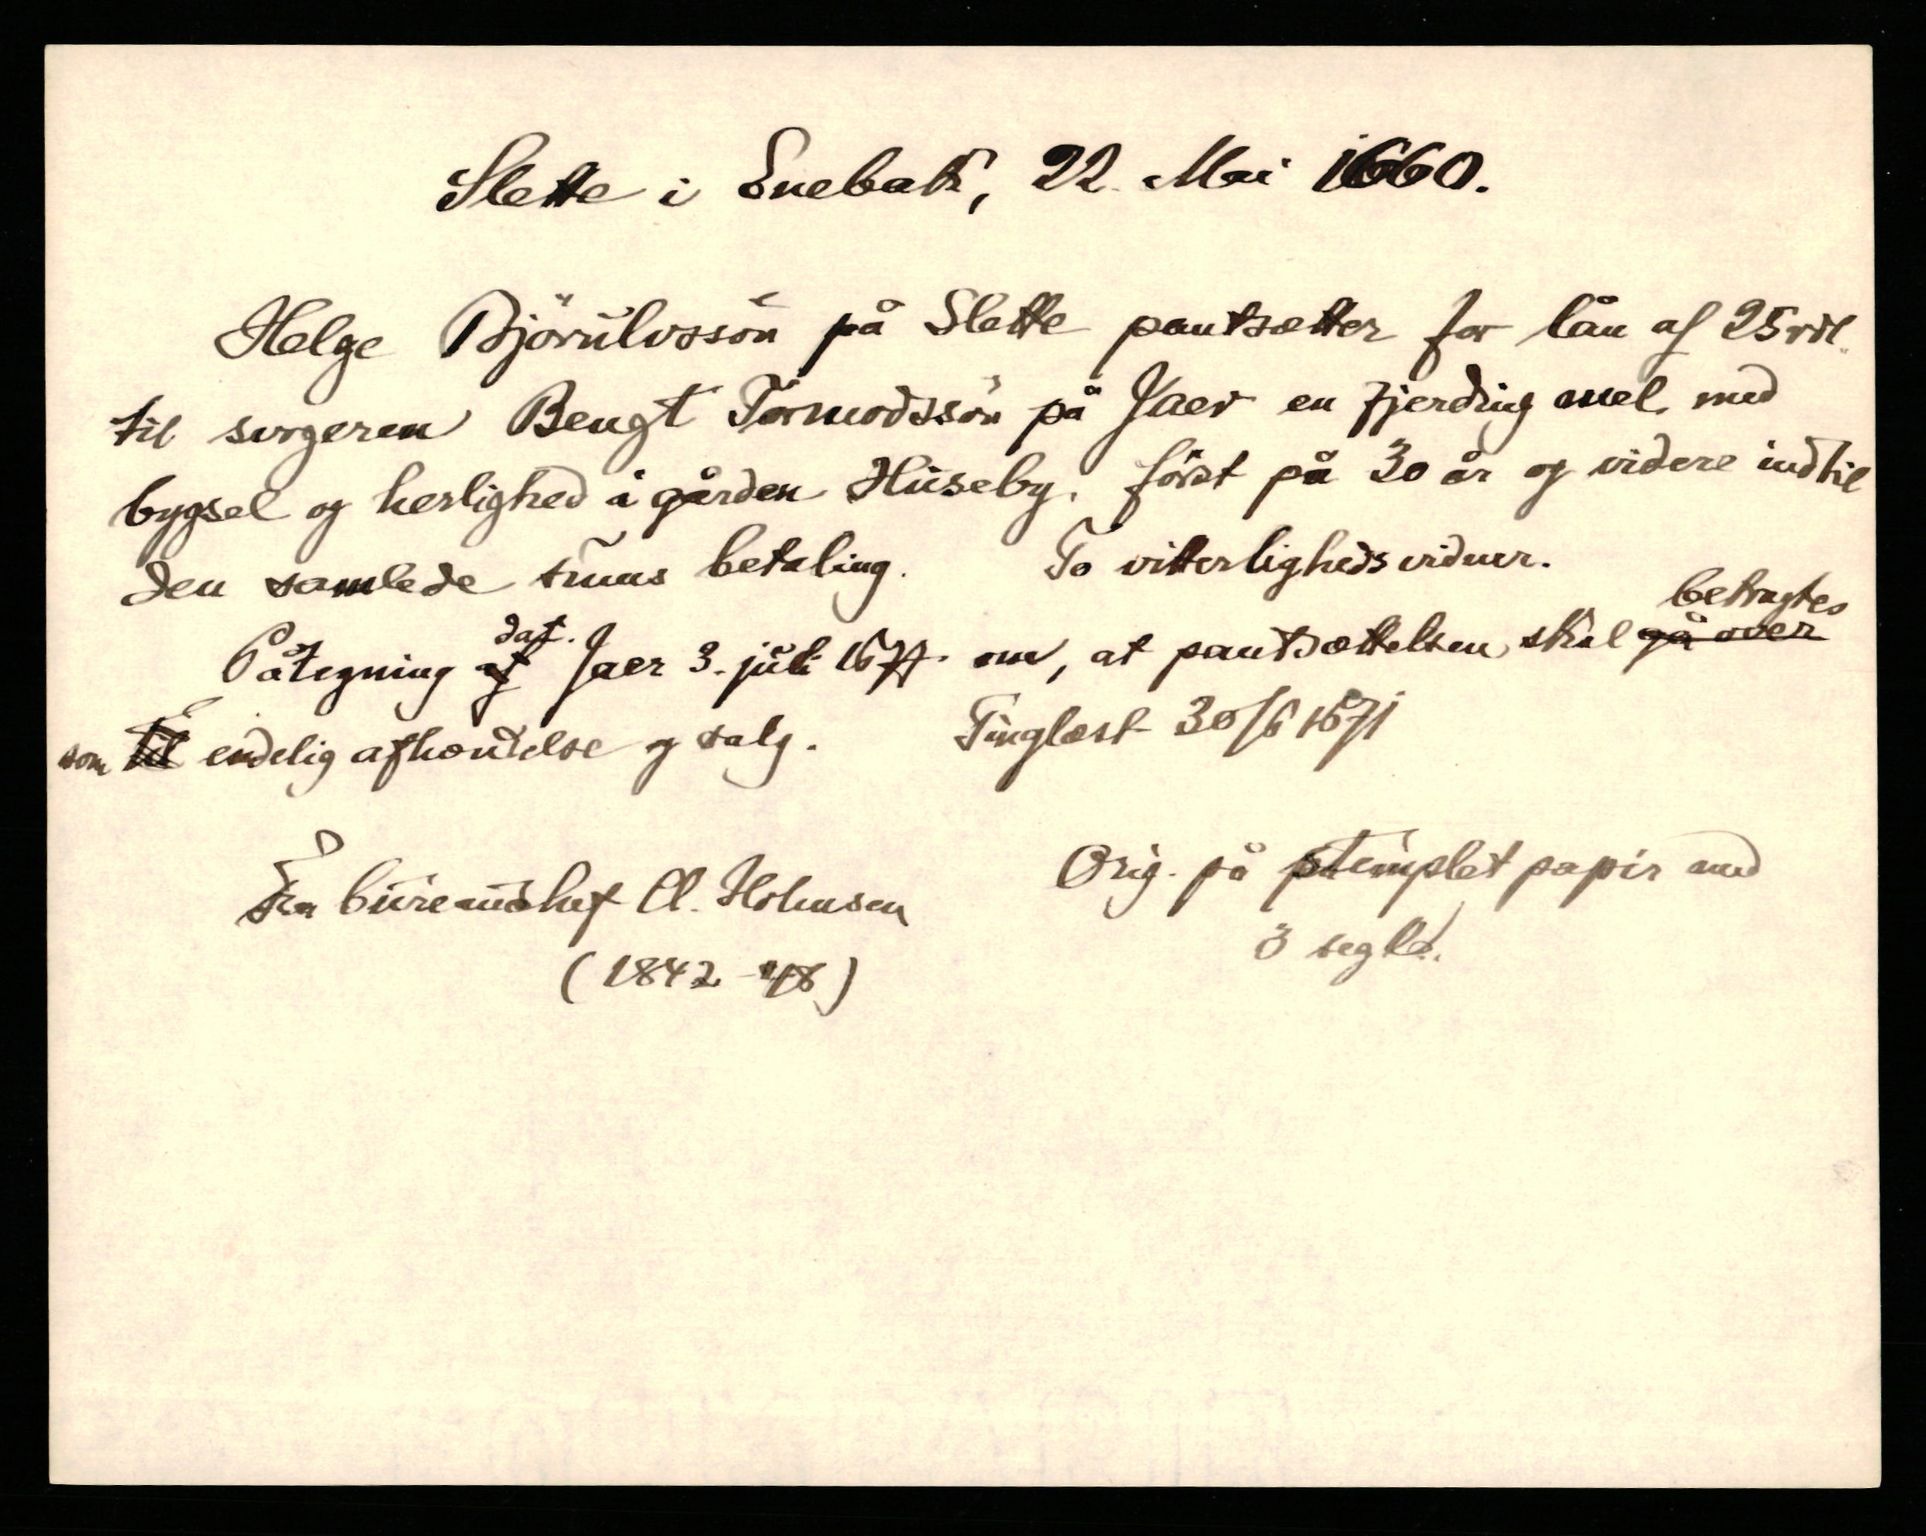 Slette i Enebak, 22. Mai 1660.
Helge Björulvssön på Slette pantsætter for lån af 25 rdl.
til svogeren Bengt Tormodssön på Jaer en fjerding mel. med
bygsel og herlighed i gården Huseby, först på 30 år og videre indtil
den samlede sums betaling. To vitterlighedsvidner.
Påtegning af dat. Jaer 3. juli 1677 om, at pantsættelsen skal gå over betragtes
som til endelig afhændelse og salg. Tinglæst 30/6 1671
Fra bureauchef Cl. Holmsen Orig. på stemplet papir med
(1842-48) 3 segler.